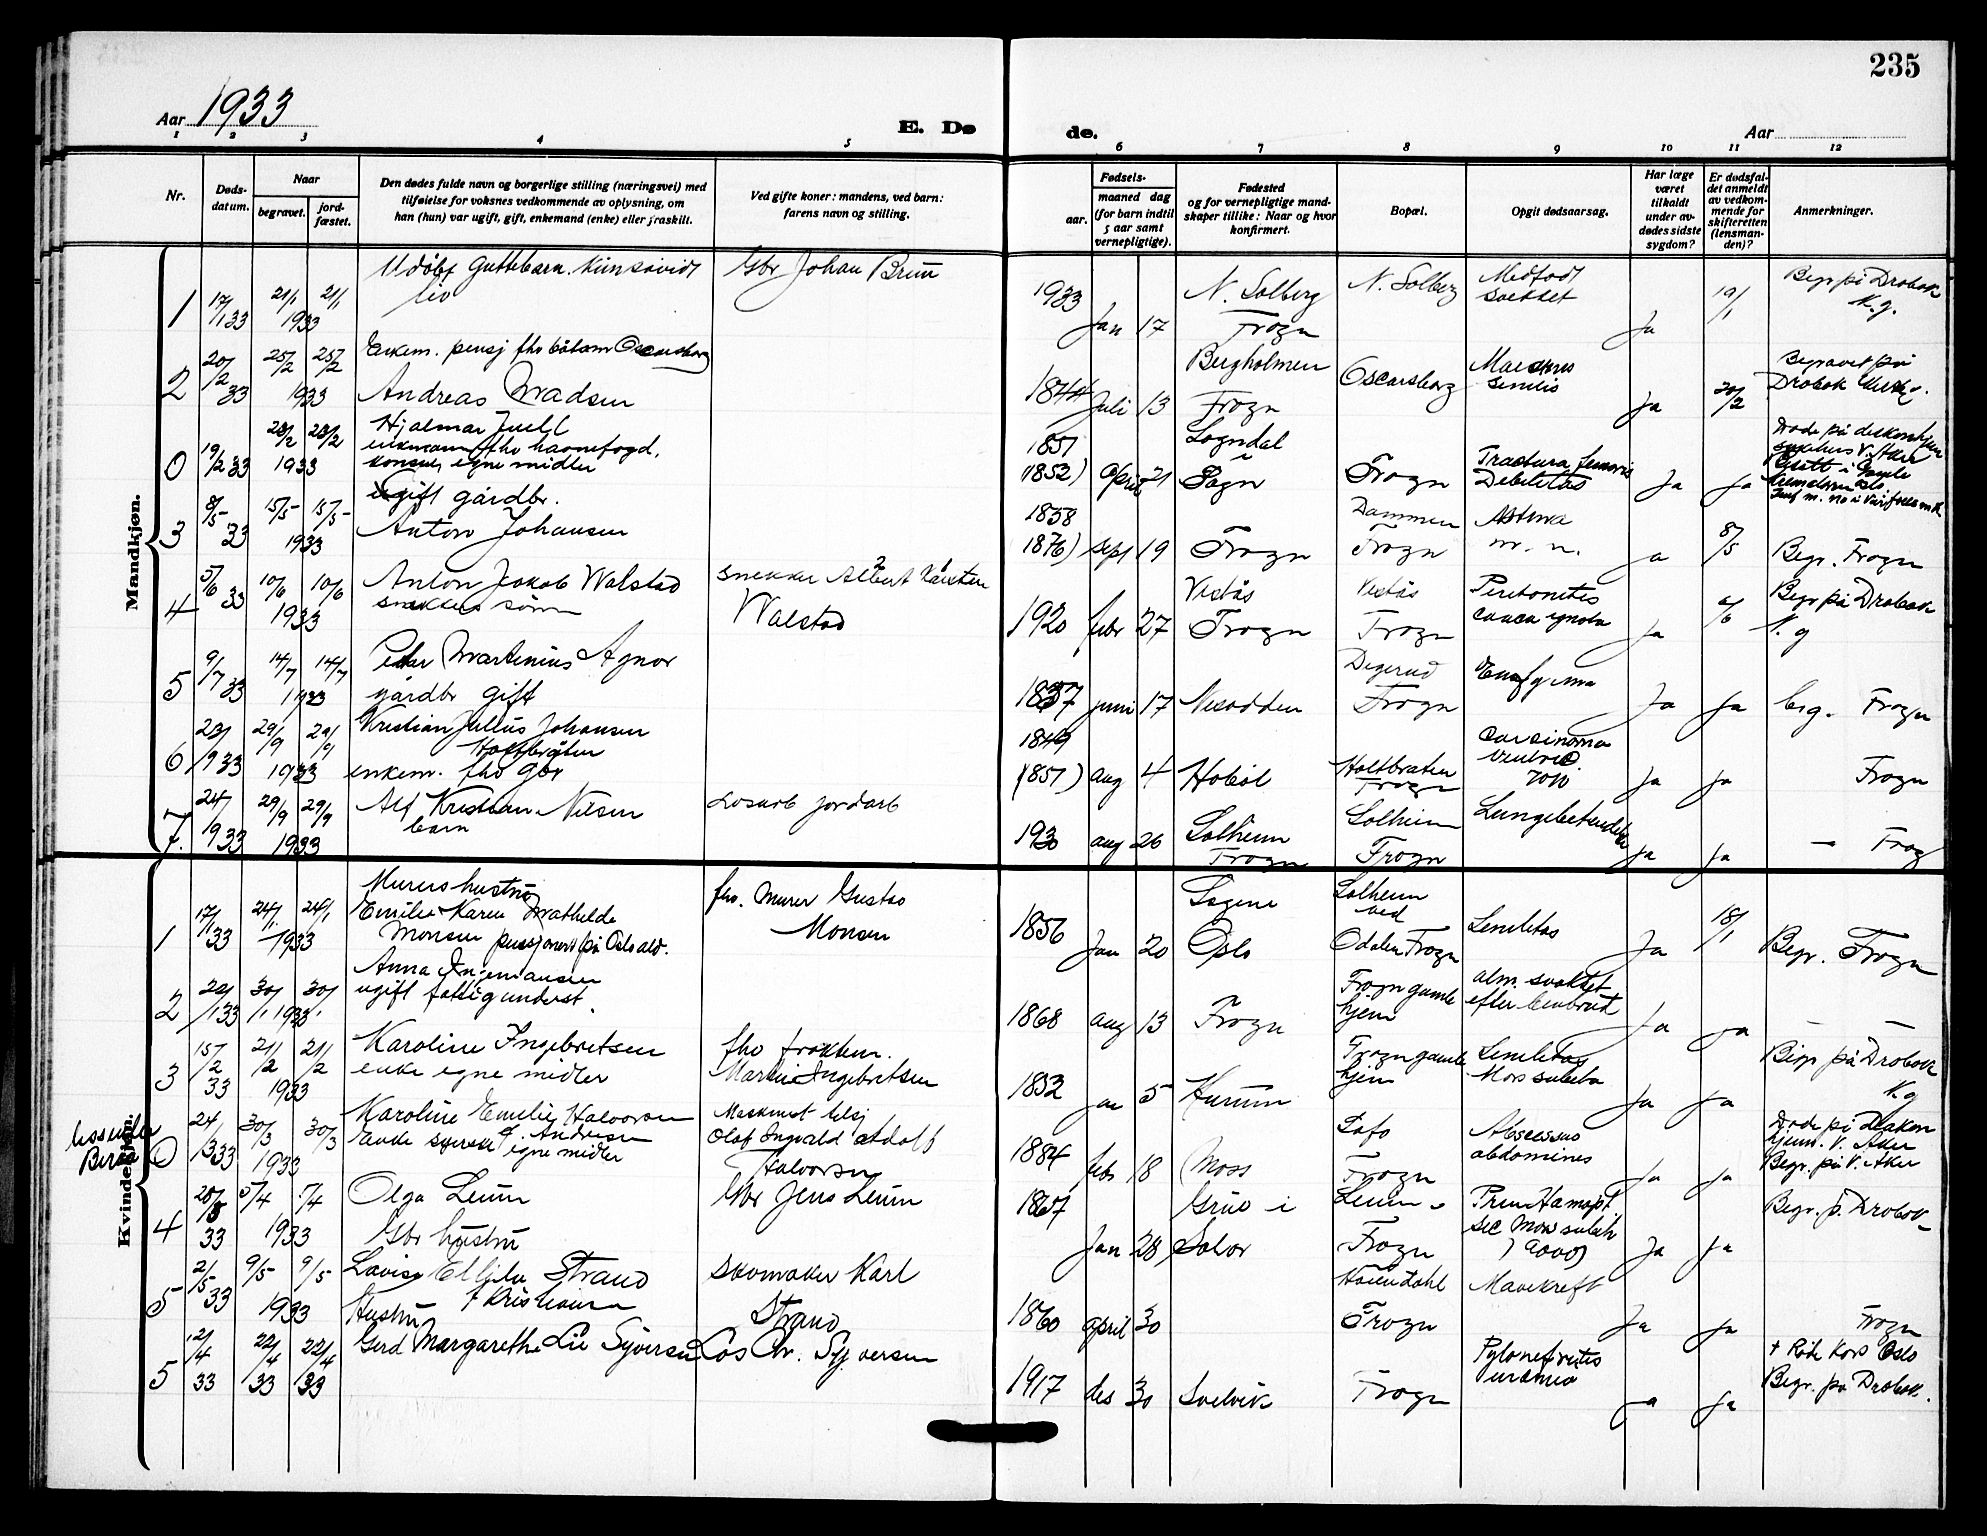 235
Aar 1933
E. Dø
de.
Aar
1 2 3 4 5 6 7 8 9 10 11 12
Nr.
Døds-
datum.
Naar
begravet.
jord-
fæstet.
Den dødes fulde navn og borgerlige stilling (næringsvei) med
tilføielse for voksnes vedkommende av oplysning, om
han (hun) var ugift, gift, enkemand (enke) eller fraskilt.
Ved gifte koner: mandens, ved barn:
farens navn og stilling.
Fødsels-
aar.
maaned dag
(for barn indtil
5 aar samt
vernepligtige).
Fødested
og for vernepligtige mand-
skaper tillike: Naar og hvor
konfirmert.
Bopæl.
Opgit dødsaarsag.
Har læge
været
tilkaldt
under av-
dødes sidste
sygdom?
Er dødsfal-
det anmeldt
av vedkom-
mende for
skifteretten
(lensman-
den)?
Anmerkninger.
Mandkjøn.
1 17/1 33 21/1 21/1 1933
Udøbt guttebarn
liv
Gbr Johan Brun
1933 Jan 17
N. Solberg
Frogn
N. Solberg
Ja 19/1
Begr på Drøbak
K.g.
2 20/2 33 25/2 25/2 1933
Enkem. pensj fhv Oscarsborg
Andreas Madsen
1844 Juli 13
Bergholmen
Frogn
Oscarsborg
senilis
Ja 20/2
Begravet på
Drøbak
0 19/2 33 23/2 23/2 1933
Hjalmar Juell
enkemann fhv havnefogd,
konsul, egne midler
1851
(1852) April 21
Sogndal
i
Sogn
Frogn
Fractura femoris
Debilitas
Ja Ja
3 8/5 33 15/5 15/5 1933
ugift gårdbr.
Anton Johansen
1858
1876) sept 19
Frogn
Dammen
Frogn
Astma
m. m.
a 8/5
Begr. Frogn
4 5/6 33 10/6 10/6 1933
Anton Jakob Walstad
snekkers sønn
snekker Albert
Walstad
1920 febr 27
Vestås
Frogn
Vestås
Frogn
Peritonitis
causa ignota
Ja 6/6
Begr på Drøbak
K. g
5 9/7 33 14/7 14/7 1933
Peter Martinius Agnor
gårdbr gift
1857 juni 17
Nesodden
Degerud
Frogn
Ja Ja
beg. Frogn
6 23/9 33 29/9 29/9 1933
Kristian Julius Johansen
Holtbråten
enkem. fhv gbr
1849
(1851) aug 4
Hobøl
Holtbråten
Frogn
carcinoma
ventric.
Ja Ja
Frogn
7. 24/9 33 29/9 29/9 1933
Alf Kristian Nilsen
barn
Losarb jordarb
1930 aug 26
Solheim
Frogn
Solheim
Frogn
Lungebetendelse
Ja Ja
— Frog
Kvindekjøn.
1 17/1 33 24/1. 24/1 1933
Murers hustru
Emilie Karen Mathilde
Monsen pensjonert på Oslo ald.
fhv. murer Gustav
Monsen
1856 Jan 20
Sagene
Oslo
Solheim
ved
Odalen Frogn
Senilitas
Ja 18/1
Begr. Frogn
2 22/1 33 30/1 30/1 1933
Anna Ingemansen
ugift fattigunderst.
1868 aug 13
Frogn
Frogn gamle
hjem
alm. svakhet
efter benbrud
Ja Ja
3 15/2 33 21/2 21/2 1933
Karoline Ingebretsen
enke egne midler
fhv
Ingebretsen
1852 jan 5
Hurum
Frogn gamle
hjem
Senilitas
Mors subita
Ja Ja
Begr på Drøbak
K.g
0 24/3 33 30/3 30/3 1933
Karoline Emilie Halvorsen
Enke f. Andersen
egne midler
Olaf Ingvald Adolf
Halvorsen
1884 feb 18
Moss
Frogn
Abscessus
abdominis
Ja Ja
Døde på Diakon
hjem. V. Aker
Begr. på V. Aker
4 28/3 33 5/4 5/4 1933
Olga Leum
Gbr hustru
Gbr Jens Leum
1867 Jan 28
Grue i
Solør
Leum
Frogn
Ja Ja
Begr. p. Drøbak
5 2/5 33 9/5 9/5 1933
Lovise Strand
f Kristiansen
Hustru
Skomaker Karl
Strand
1860 april 30
Frogn
Mavekreft
Ja Ja
Frogn
5 12/4 33 22/4 33 22/4 33
Gerd Margarethe Lie Syversen
Los Chr. Syversen
1917 des 30
Svelvik
Frogn
Pylonefritis
uremia
Ja Ja
† Røde Kors Oslo
Begr. på Drøbak.